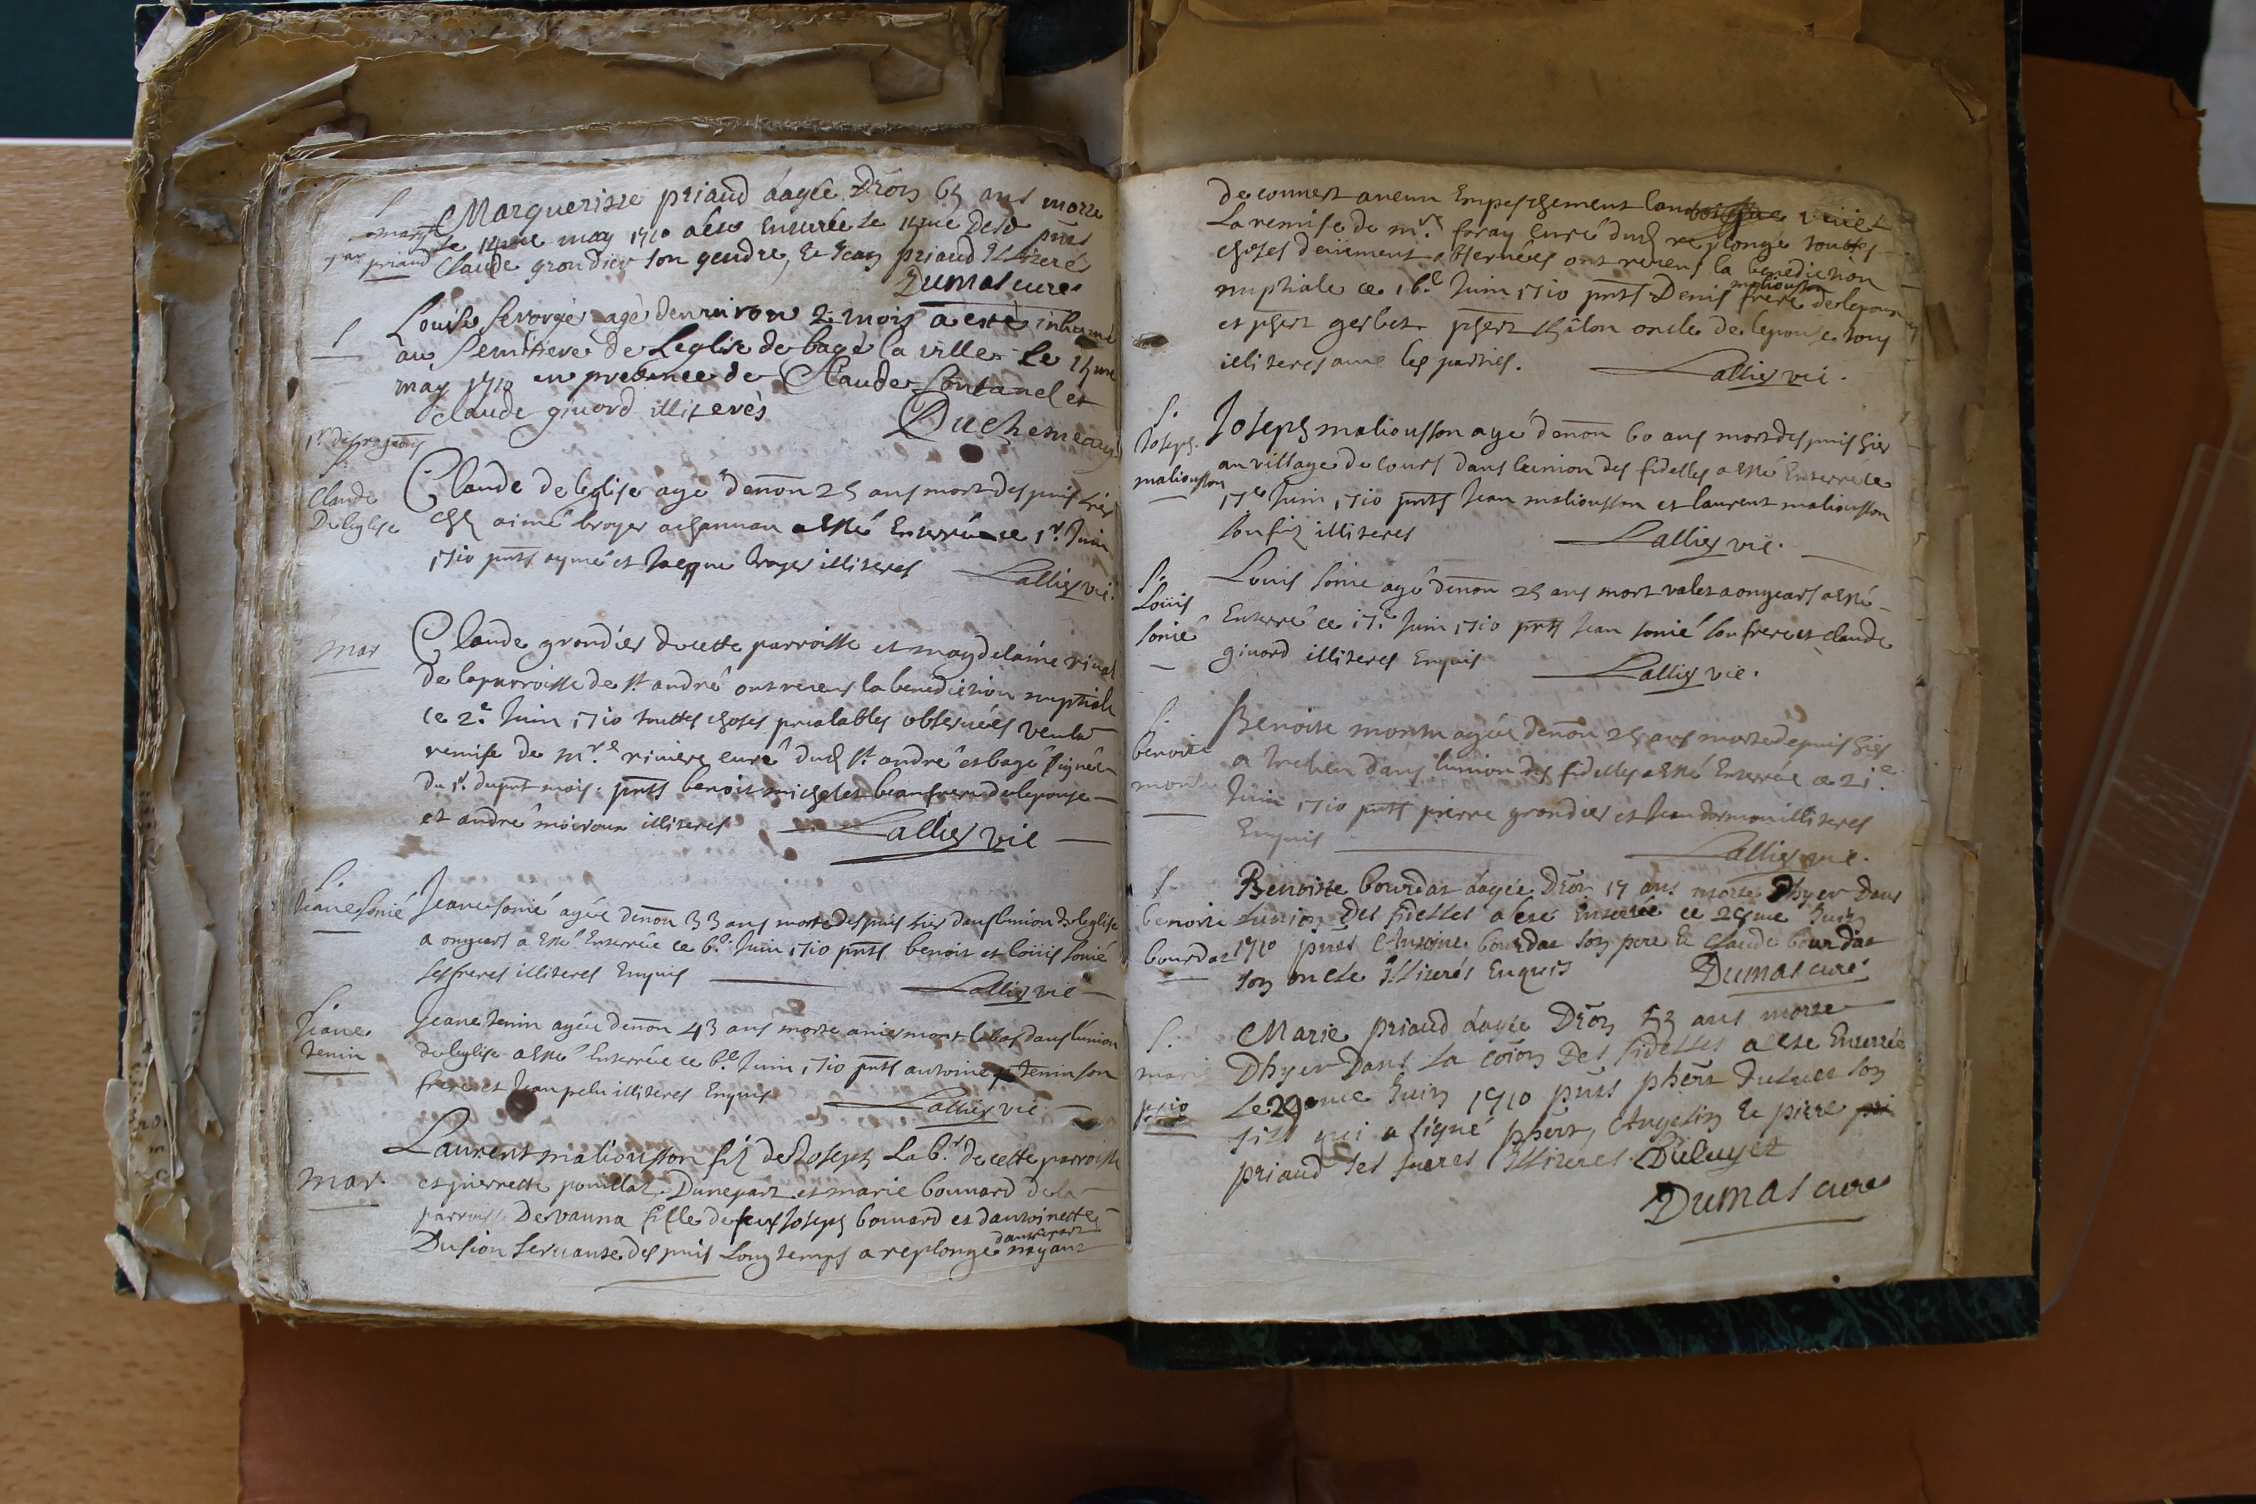 S
marg^te
priaud
Margueritte priaud aagée Dēon 65 ans morte
le 14me may 1710 a este Enterrée le 15me desd pñts
Claude grondier son gendre, et Jean priaud Illiteré
Dumas curé
S
Louise agé denniron 2 mois a esté inhumé
au Semittiere de Leglise de bagé la ville le 15me
may 1710 en presence de Claude fontanel et
claude givord illiterés
Duchemeau
1^r
S.
Claude
Deleglise
Claude deleglise agé denōn 25 ans mort despuis hier
ches aimé broyer achannan a esté Enterré ce 1^r. Juin
1710 pnts aymé et Jacque broyer illiteres Lallier vic.
mar
Claude grondier de cette parroisse et magdelaine rivat
de la parroisse de s^t. andré ont receus la benediction nuptiale
ce 2^e. Juin 1710 touttes choses prealables observées veu la
remise de m^re. riviere curé dud s^t. andré et bagé signée
du 1^r. dupnt mois. pnts benoit michelet beaufrere de lepouse
et andré moiroux illiteres Lallier vic
S.
Jeane sonié
Jeane sonié agée denōn 33 ans morte despuis hier dans lunion de leglise
a ongears a esté Enterrée ce 6^e. Juin 1710 pnts benoit et loüis sonié
ses freres illiteres Enquis Lallier vic
S.
Jeane
tenin
Jeane tenin agée denōn 43 ans morte a niermont le bas dans lunion
de leglise a esté Enterrée ce 6^e. Juin 1710 pnts antoine tenin son
frere et Jean pelu illiteres Enquis Lallier vic
mar.
Laurent maliousson fil de Joseph Lab^r. de cette parroisse
et pierrette pouillat. Dunepart et marie bouuard de la
parroisse De vauna fille de feux Joseph bouuard et dantoinette
Dusion servante despuis Longtemps a replonge dautrepart nayant
de couuert aucun Empeschement veüe
La remise de m^re. foray curé dud replonge touttes
choses deüement observées ont receus la benediction
nuptiale ce 16^e Juin 1710 pnts Denis maliousson frere de lepoux
et phert gerbet. phert chilon oncle de lepouse tous
illiteres auec les parties. Lallier vic.
S.
Joseph
maliousson
Joseph maliousson agé denōn 60 ans mort despuis hier
au village de cours dans lunion des fidelles a esté Enterré le
17^e Juin 1710 pnts Jean maliousson et laurent maliousson
son fiz illiteres Lallier vic.
S.
Loüis
sonié
Louis sonié agé denōn 25 ans mort valet a ongears a esté
Enterré ce 17^e. Juin 1710 pnts Jean sonié son frere et claude
givord illiteres Enquis Lallier vic.
S.
benoite
Benoite agée denōn 25 ans morte depuis hier
a dans lunion des fidelles a esté Enterrée ce 21^e.
Juin 1710 pnts pierre grondier et Jean illiteres
Enquis Lallier vic.
S
benoite
bourdat
Benoitte bourdat aagée Dēon 17 ans morte Dhyer Dans
Lunion Des fidelles a este Enterrée ce 25me Juin
1710 pnts Antoine bourdat son pere et Claude bourdat
son oncle Illiterés Enquis Dumas curé
S.
marie
prio
Marie priaud aagée Dēon 53 ans morte
Dhyer Dans La cōion Des fidelles a este Enterrée
Le 29me Juin 1710 pnts phert Duluet son
fils qui a signé phert, Angelin et pierre
priaud ses freres Illiteres. Duluyet
Dumas curé